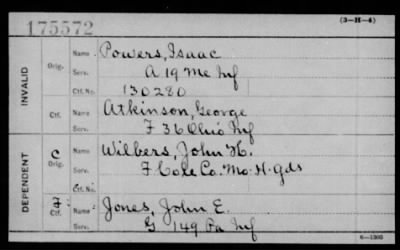 175572
(3-H-4)
INVALID
Orig.
Name Powers, Isaac
Serv. A 19 Me Inf
Ctf. No. 130280
Ctf.
Name Atkinson, George
Serv. F 36 Ohio Inf
DEPENDENT
C
Orig.
Name Wilbers, John H.
Serv. F Cole Co. Mo. H. gds
Ctf.
Name Jones, John E.
Serv. G 149 Pa Inf